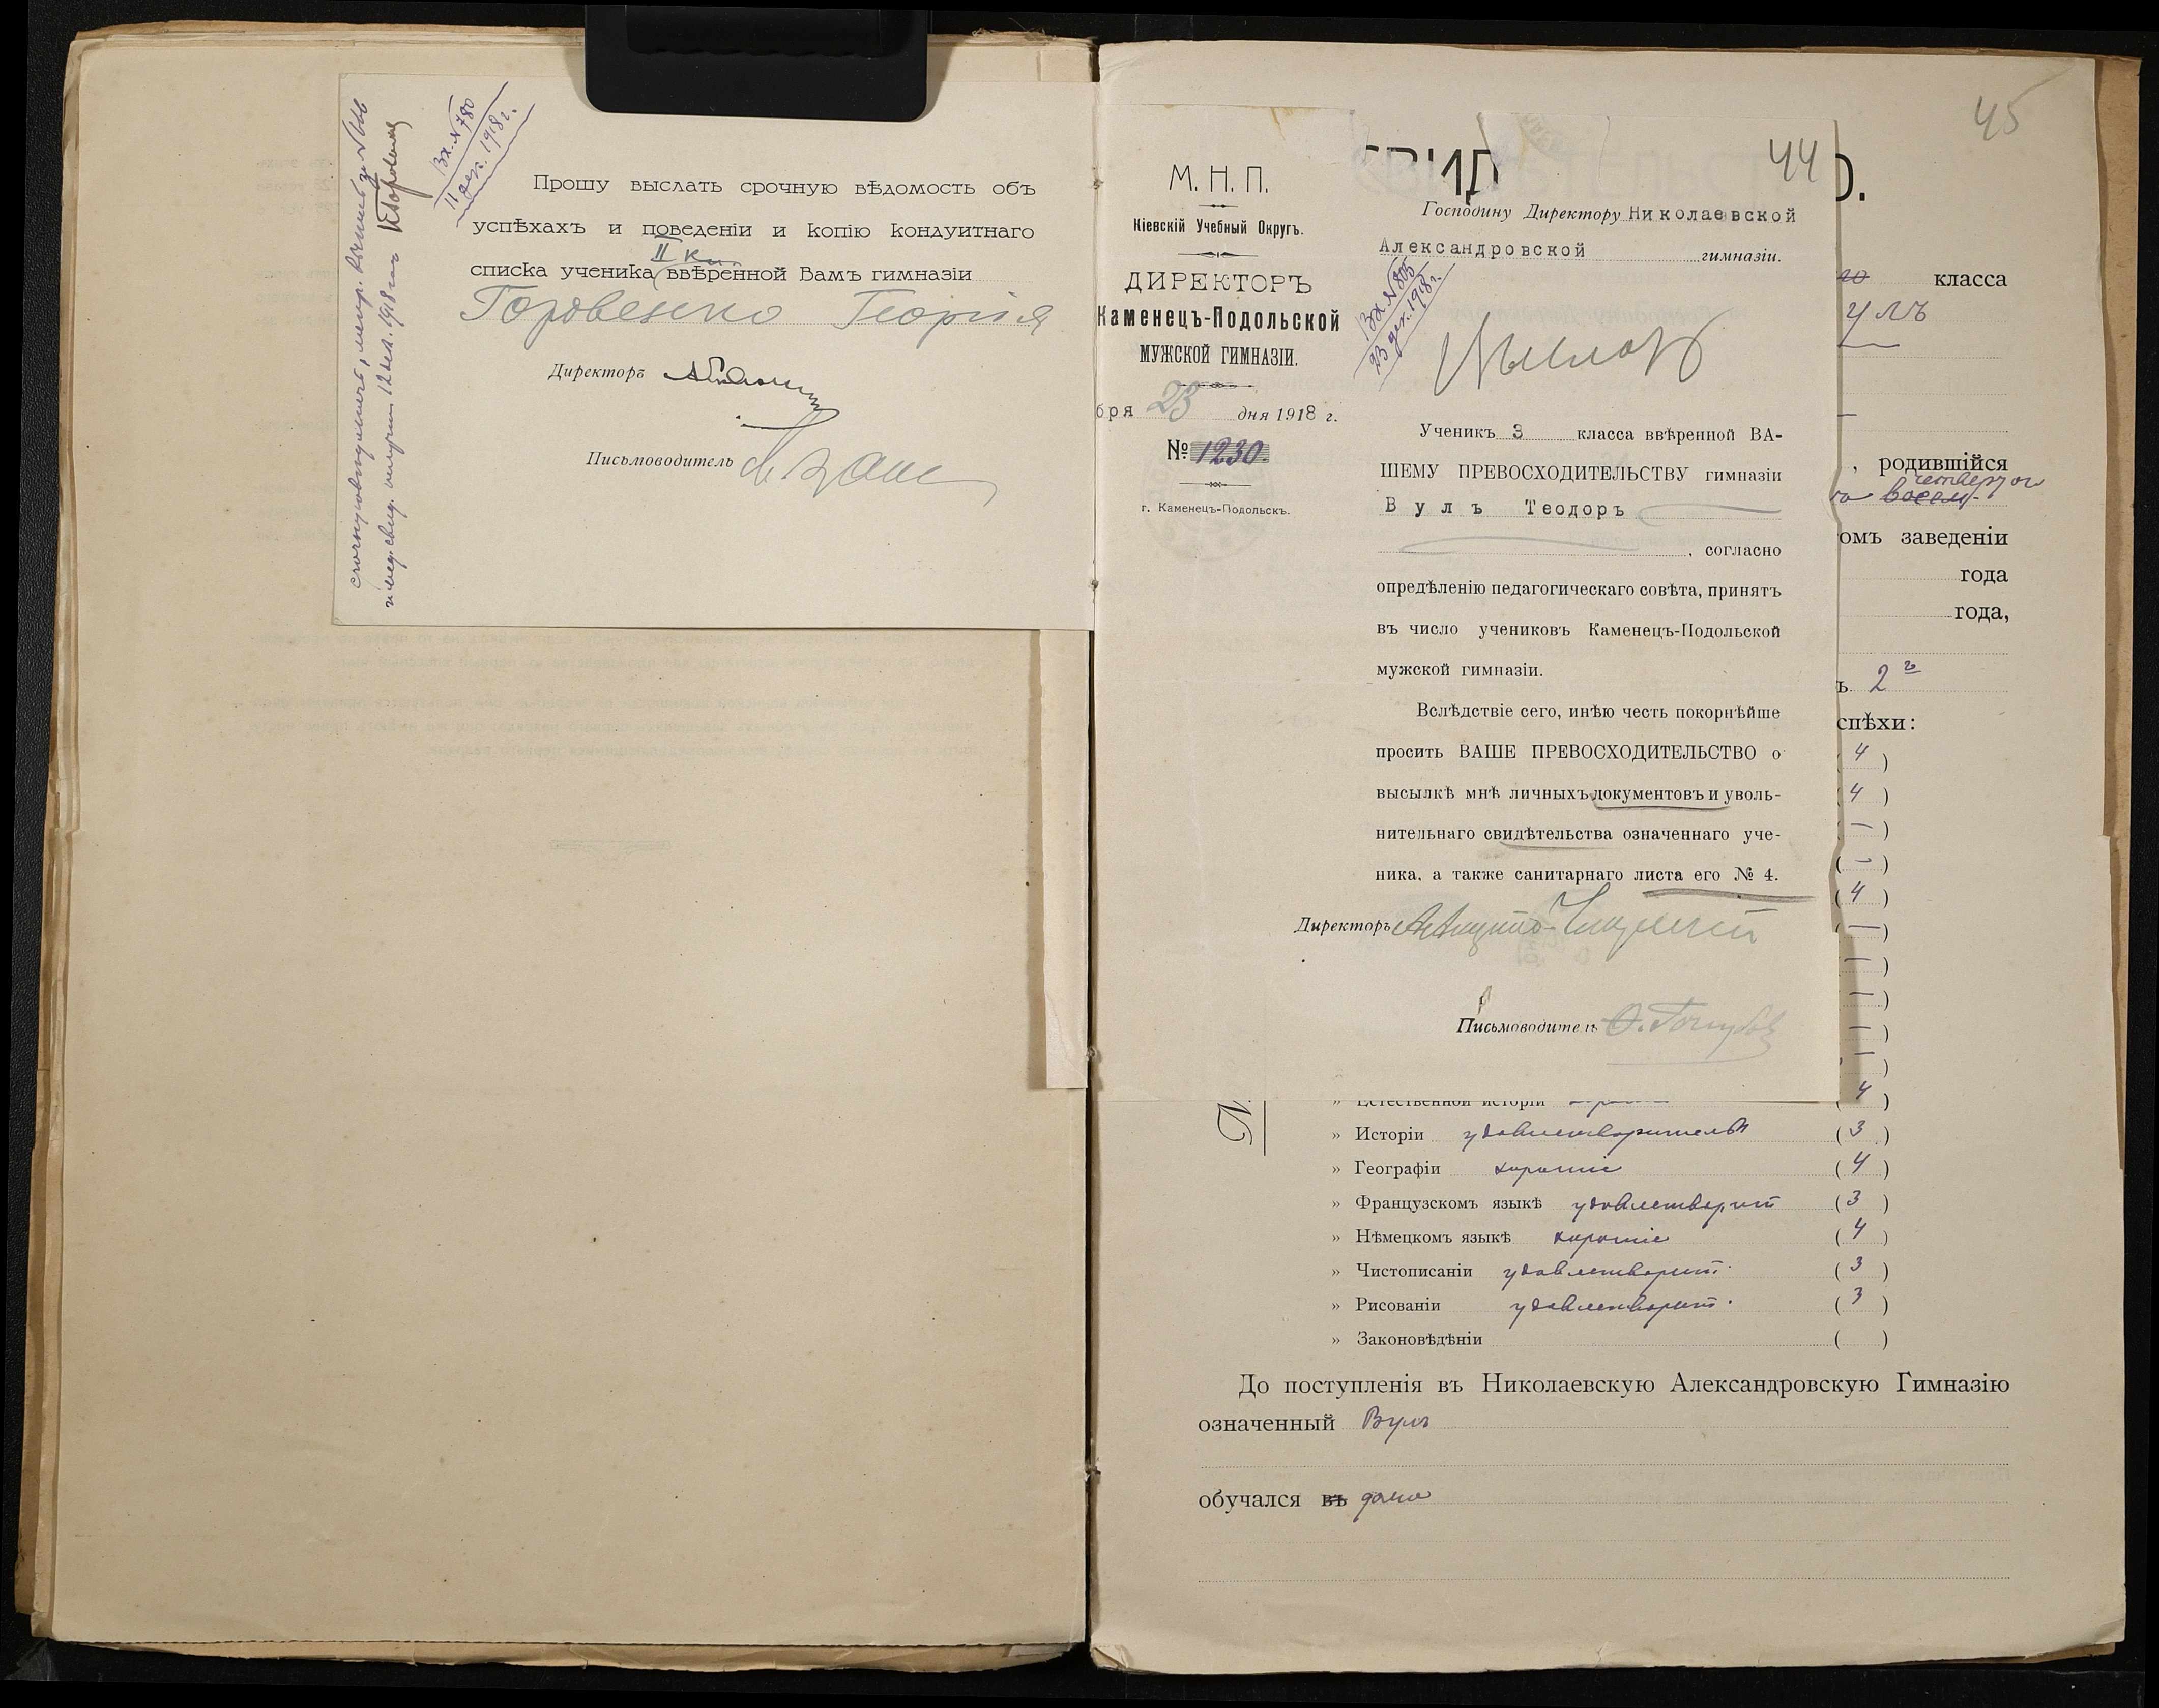 Вх. № 780
11 дек. 1918 г.
Прошу выслать срочную вѣдомость объ
успѣхахъ и поведеніи и копію кондуитнаго
II кл.
списка ученика ввѣренной Вамъ гимназіи
Горовенко Георгія
Директоръ
Письмоводитель
45
44
СВИД
О.
М. Н. П.
Кіевскій Учебный Округъ.
ДИРЕКТОРЪ
Каменецъ-Подольской
МУЖСКОЙ ГИМНАЗІИ.
бря 23 дня 1918 г.
№ 1230.
г. Каменецъ-Подольскъ.
Господину Директору Николаевской
Александровской гимназіи.
Вх. № 805
23 дек. 1918 г.
Ученикъ 3 класса ввѣренной ВА-
ШЕМУ ПРЕВОСХОДИТЕЛЬСТВУ гимназіи
Вулъ Теодоръ
, согласно
опредѣленію педагогическаго совѣта, принятъ
въ число учениковъ Каменецъ-Подольской
мужской гимназіи.
Вслѣдствіе сего, инѣю честь покорнѣйше
просить ВАШЕ ПРЕВОСХОДИТЕЛЬСТВО о
высылкѣ мнѣ личныхъ документовъ и уволь-
нительнаго свидѣтельства означеннаго уче-
ника, а также санитарнаго листа его № 4.
Директоръ
Письмоводитель
го класса
улъ
, родившійся
четвертого
восем
омъ заведеніи
года
года,
ъ 2 г
спѣхи:
( 4 )
( 4 )
( — )
( — )
( 4 )
( — )
— )
— )
— )
— )
» Естественной исторіи ( 4 )
» Исторіи удовлетворительн ( 3 )
» Географіи хорошіе ( 4 )
» Французскомъ языкѣ удовлетворит ( 3 )
» Нѣмецкомъ языкѣ хорошіе ( 4 )
» Чистописаніи удовлетворит. ( 3 )
» Рисованіи удовлетворит. ( 3 )
» Законовѣдѣніи ( )
До поступленія въ Николаевскую Александровскую Гимназію
означенный Вулъ
обучался въ дома